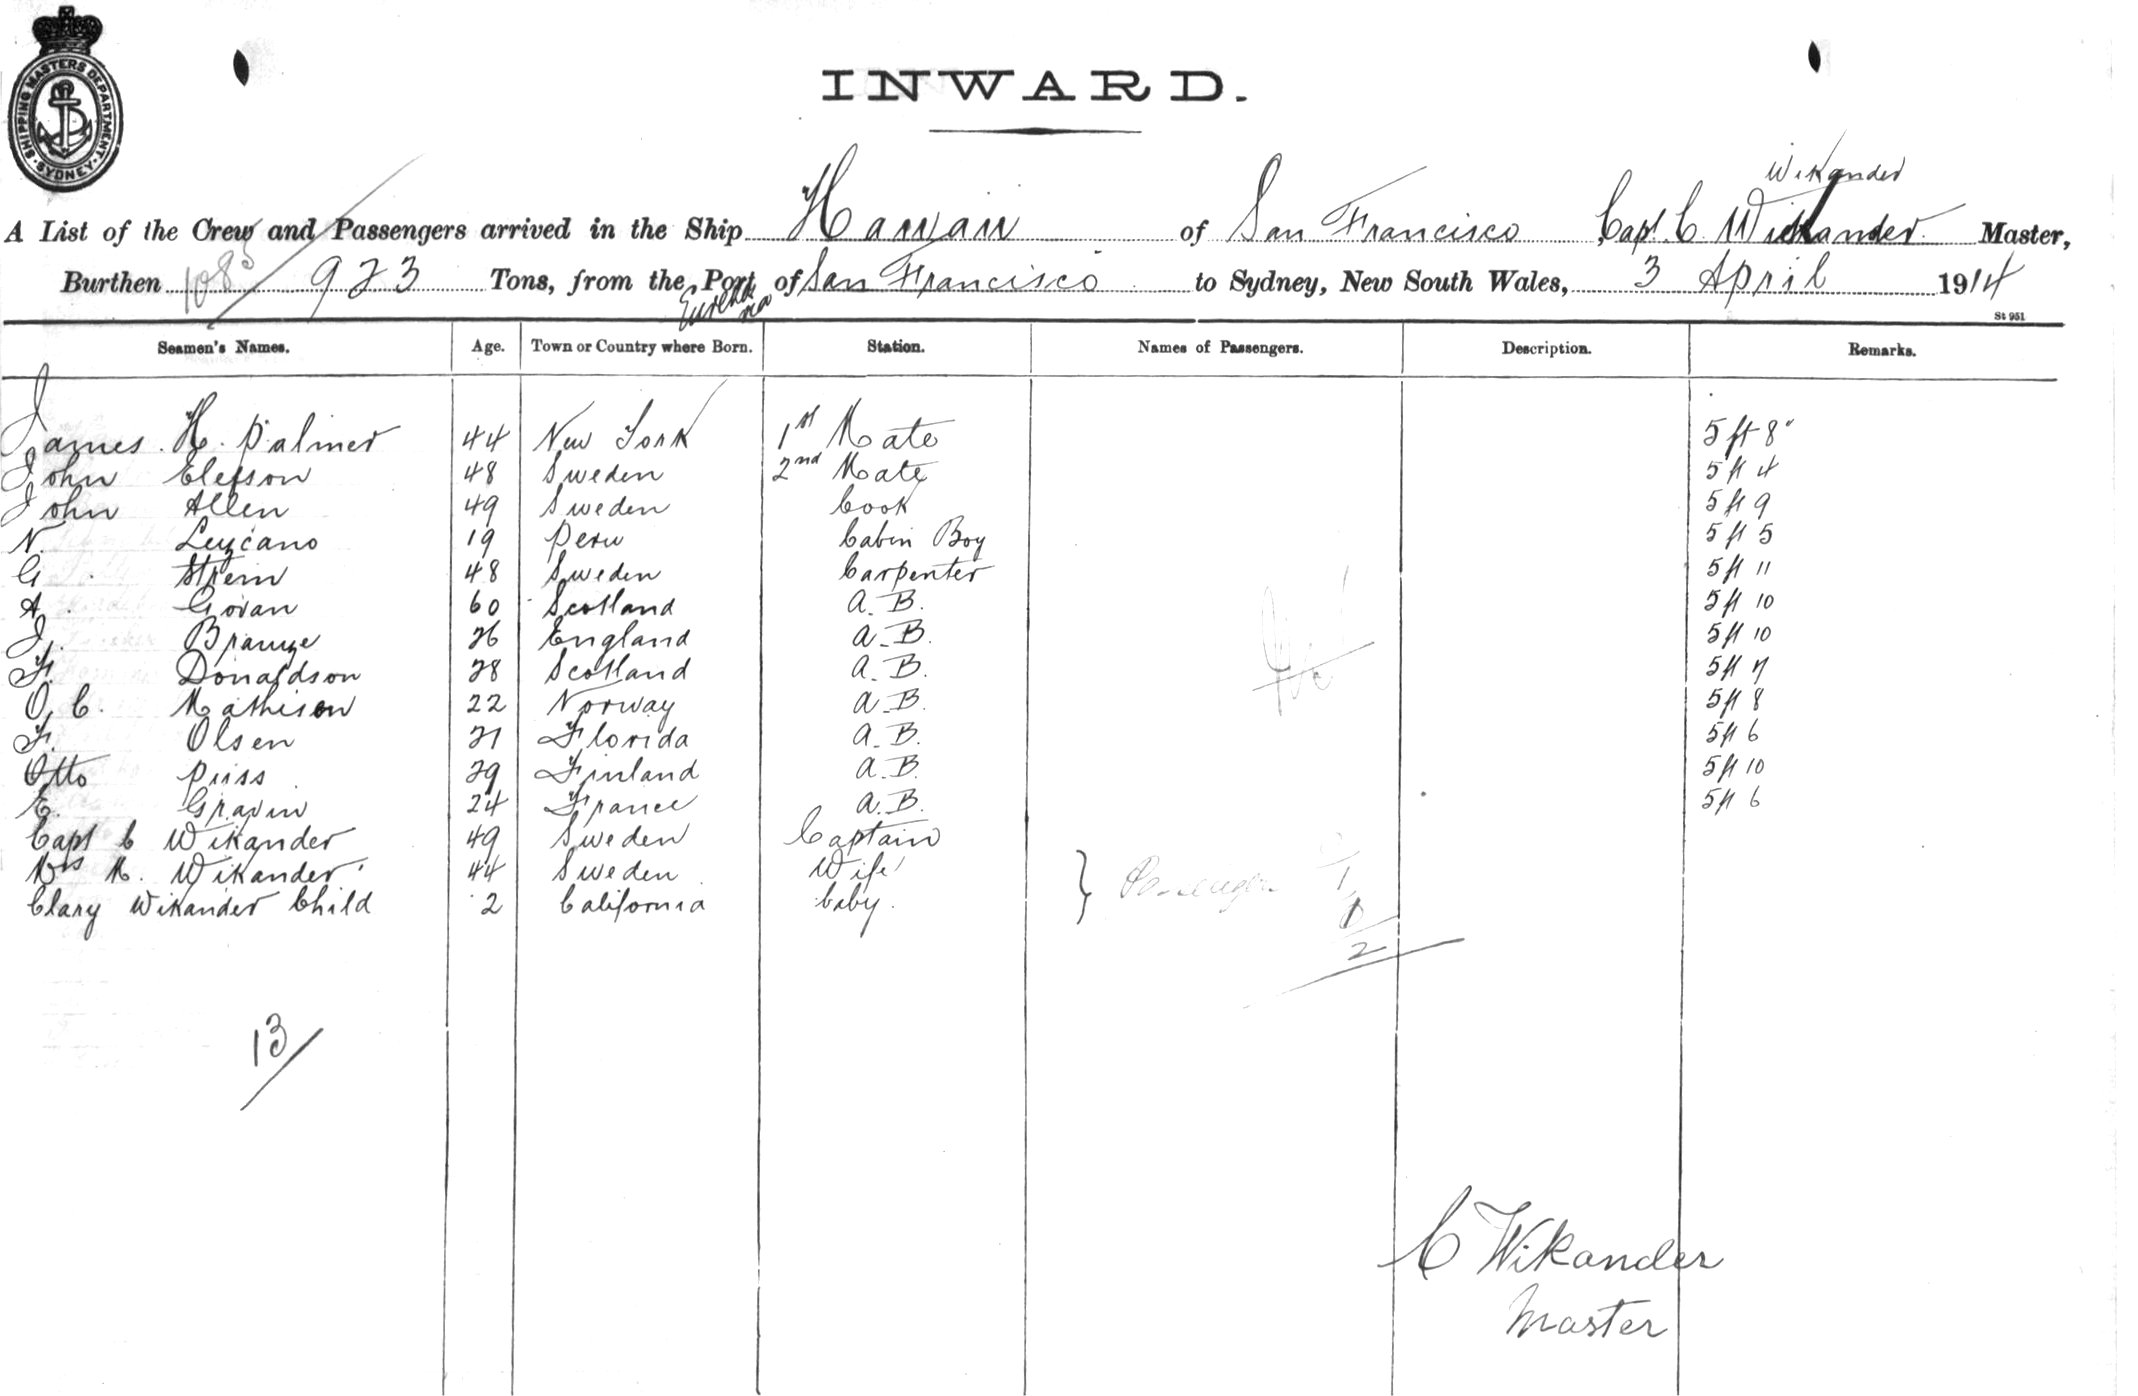 SHIPPING MASTERS DEPARTMENT · SYDNEY ·
INWARD.
Wikander
A List of the Crew and Passengers arrived in the Ship Hawaii of San Francisco Capt. C. Wickander Master,
Burthen 1085 923 Tons, from the Port of San Francisco to Sydney, New South Wales, 3 April 1914
Eureka via
St 951
Seamen's Names. Age. Town or Country where Born. Station. Names of Passengers. Description. Remarks.
James. H. Palmer 44 New York 1st Mate 5 ft 8"
John Elefson 48 Sweden 2nd Mate 5 ft 4
John Allen 49 Sweden Cook 5 ft 9
N. Leyzano 19 Peru Cabin Boy 5 ft 5
G. Strem 48 Sweden Carpenter 5 ft 11
A. Govan 60 Scotland A. B. 5 ft 10
J. 26 England A. B. 5 ft 10
F. Donaldson 28 Scotland A. B. 5 ft 7
O. C. Mathison 22 Norway A. B. 5 ft 8
F. Olsen 21 Florida A. B. 5 ft 6
Otto Puss 29 Finland A. B. 5 ft 10
E. Gravin 24 France A. B. 5 ft 6
Capt C Wikander 49 Sweden Captain
Mrs M. Wikander 44 Sweden Wife
Clary Wikander Child 2 California baby.
} Passengers 1
1
2
13
C Wikander
Master